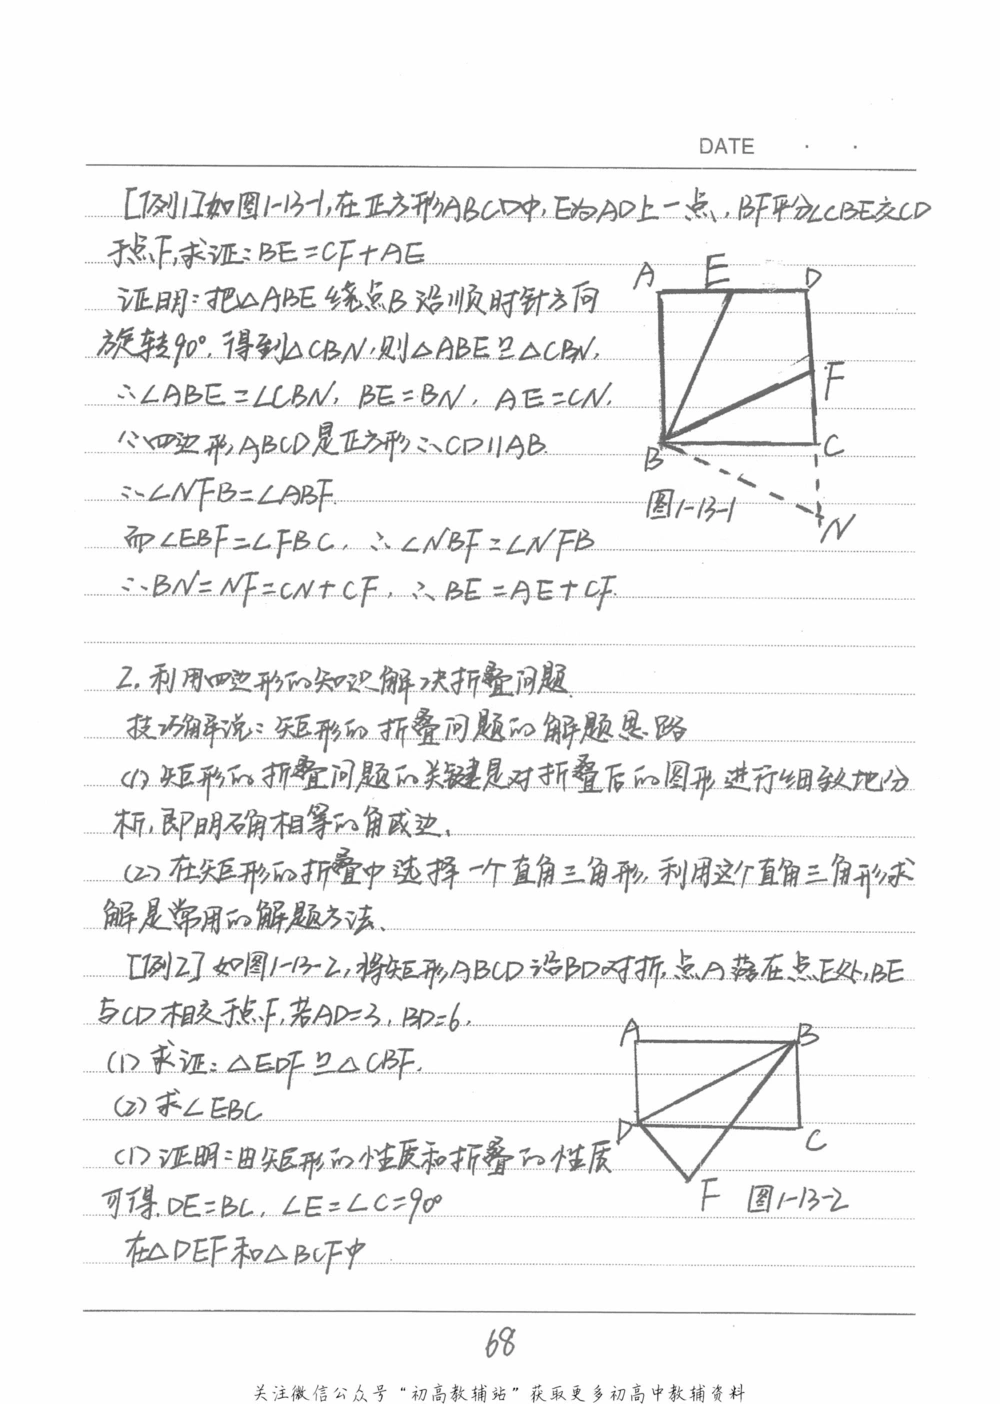 DATE · ·
[例1]如图1-13-1,在正方形ABCD中,E为AD上一点,BF平分∠CBE交CD
于点F,求证:BE=CF+AE
证明:把△ABE绕点B沿顺时针方向
旋转90°,得到△CBN,则△ABE≌△CBN,
∴∠ABE=∠CBN, BE=BN, AE=CN,
∵四边形ABCD是正方形∴CD∥AB.
∴∠NFB=∠ABF.
而∠EBF=∠FBC, ∴∠NBF=∠NFB
∴BN=NF=CN+CF, ∴BE=AE+CF.
A E D
F
B C
图1-13-1
N
2.利用四边形的知识解决折叠问题
技巧解说:矩形的折叠问题的解题思路
(1)矩形的折叠问题的关键是对折叠后的图形进行细致地分
析,即明确相等的角或边.
(2)在矩形的折叠中选择一个直角三角形,利用这个直角三角形求
解是常用的解题方法.
[例2]如图1-13-2,将矩形ABCD沿BD对折,点A落在点E处,BE
与CD相交于点F,若AD=3,BD=6.
(1)求证:△EDF≌△CBF.
(2)求∠EBC
(1)证明:由矩形的性质和折叠的性质
可得,DE=BC,∠E=∠C=90°
在△DEF和△BCF中
A B
D C
F 图1-13-2
68
关注微信公众号“初高教辅站”获取更多初高中教辅资料